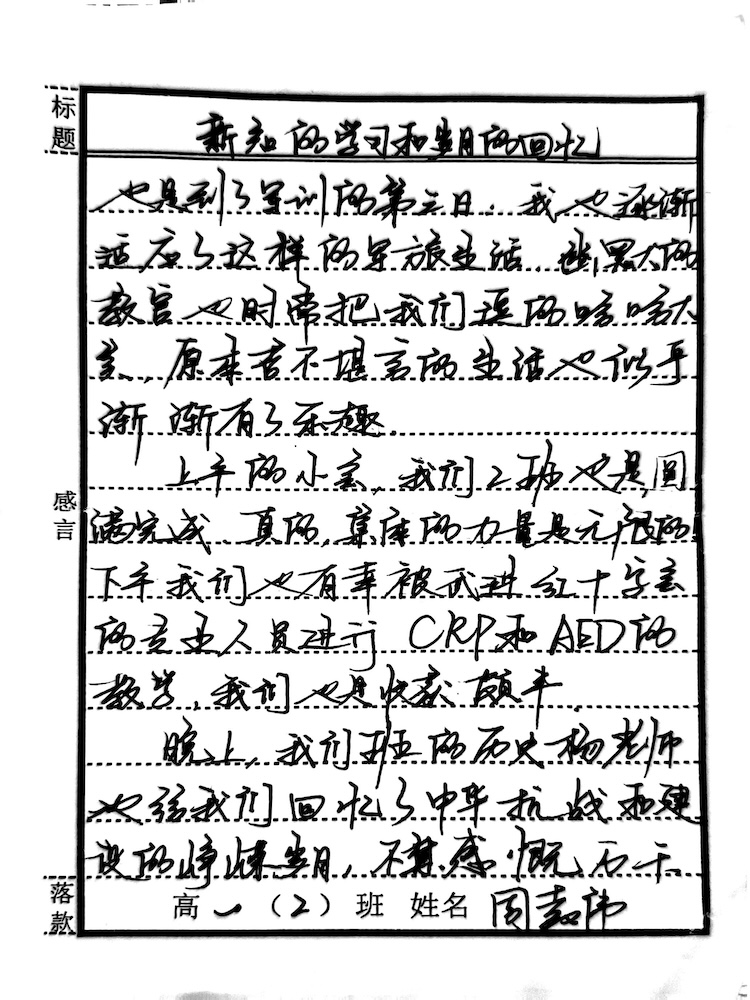 标题
新知的学习和岁月的回忆
也是到了军训的第三日。我也逐渐
适应了这样的军旅生活,幽黑大的
教官也时常把我们逗的哈哈大
笑,原本苦不堪言的生活也似乎
渐渐有了乐趣。
上午的小会,我们2班也是圆
满完成,真的,集体的力量是无限的!
下午我们也有幸被武进红十字会
的专业人员进行CRP和AED的
教学,我们也是收获颇丰。
晚上,我们班的历史杨老师
也给我们回忆了中华抗战和建
设的峥嵘岁月,不甚感慨万千。
感言
落款
高一(2)班 姓名 周志伟